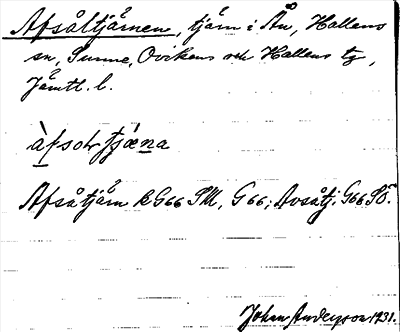 Afsåtjärnen, tjärn i Ån, Hallens
sn, Sunne, Ovikens och Hallens tg,
Jämtl. l.
Afsåtjärn k G66 SM, G66; Avsåtj. G66 SÖ.
Johan Anderson 1931.